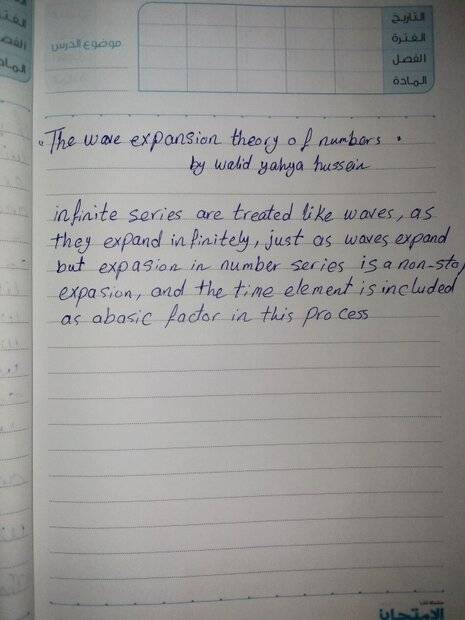 التاريخ
الفترة
موضوع الدرس
الفصل
المادة
"The wave expansion theory of numbers .
by walid yahya hussein
infinite series are treated like waves, as
they expand infinitely, just as waves expand
but expasion in number series is a non-sto
expasion, and the time element is included
as abasic factor in this process
الامتحان